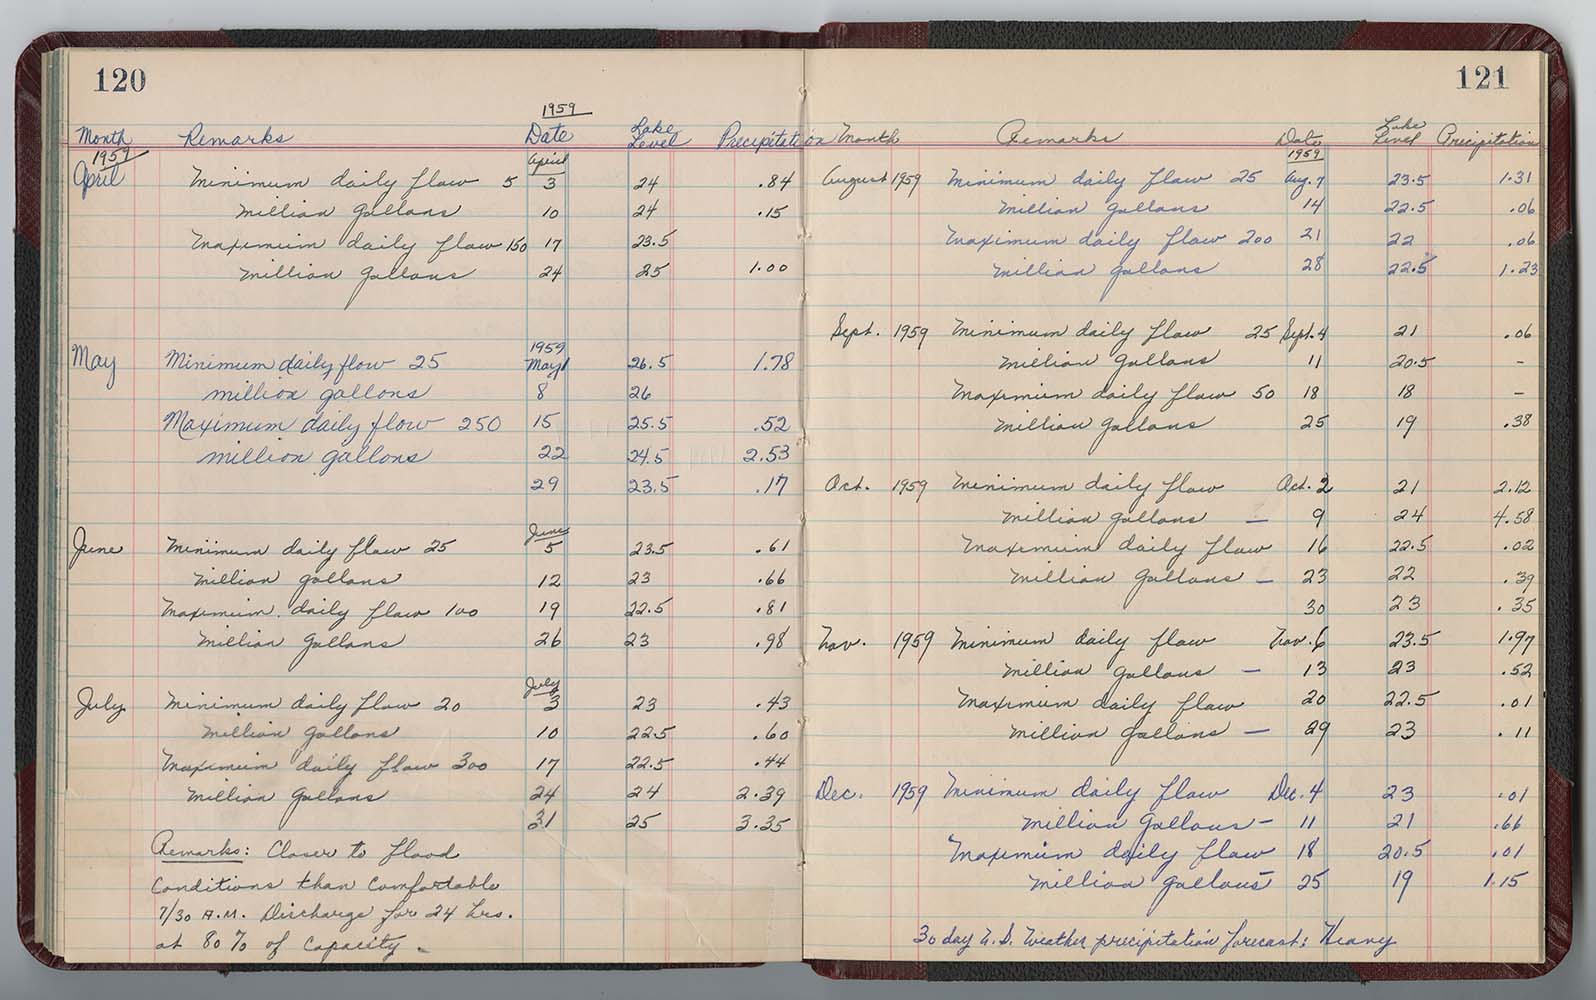 120
1959
Month Remarks Date Lake Level Precipitation
1959 April
April Minimum daily flow 5 3 24 .84
million gallons 10 24 .15
Maximum daily flow 150 17 23.5
million gallons 24 25 1.00
1959
May Minimum daily flow 25 May 1 26.5 1.78
million gallons 8 26
Maximum daily flow 250 15 25.5 .52
million gallons 22 24.5 2.53
29 23.5 .17
June
June Minimum daily flow 25 5 23.5 .61
million gallons 12 23 .66
Maximum daily flow 100 19 22.5 .81
million gallons 26 23 .98
July
July Minimum daily flow 20 3 23 .43
million gallons 10 22.5 .60
Maximum daily flow 300 17 22.5 .44
million gallons 24 24 2.39
31 25 3.35
Remarks: Closer to flood
conditions than comfortable
7/30 A.M. Discharge for 24 hrs.
at 80% of capacity -
121
Month Remarks Date Lake Level Precipitation
1959
August 1959 Minimum daily flow 25 Aug. 7 23.5 1.31
million gallons 14 22.5 .06
Maximum daily flow 200 21 22 .06
million gallons 28 22.5 1.23
Sept. 1959 Minimum daily flow 25 Sept. 4 21 .06
million gallons 11 20.5 -
Maximum daily flow 50 18 18 -
million gallons 25 19 .38
Oct. 1959 Minimum daily flow Oct. 2 21 2.12
million gallons - 9 24 4.58
Maximum daily flow 16 22.5 .02
million gallons - 23 22 .39
30 23 .35
Nov. 1959 Minimum daily flow Nov. 6 23.5 1.97
million gallons - 13 23 .52
Maximum daily flow 20 22.5 .01
million gallons - 29 23 .11
Dec. 1959 Minimum daily flow Dec. 4 23 .01
million gallons - 11 21 .66
Maximum daily flow 18 20.5 .01
million gallons - 25 19 1.15
30 day U.S. Weather precipitation forecast: Heavy